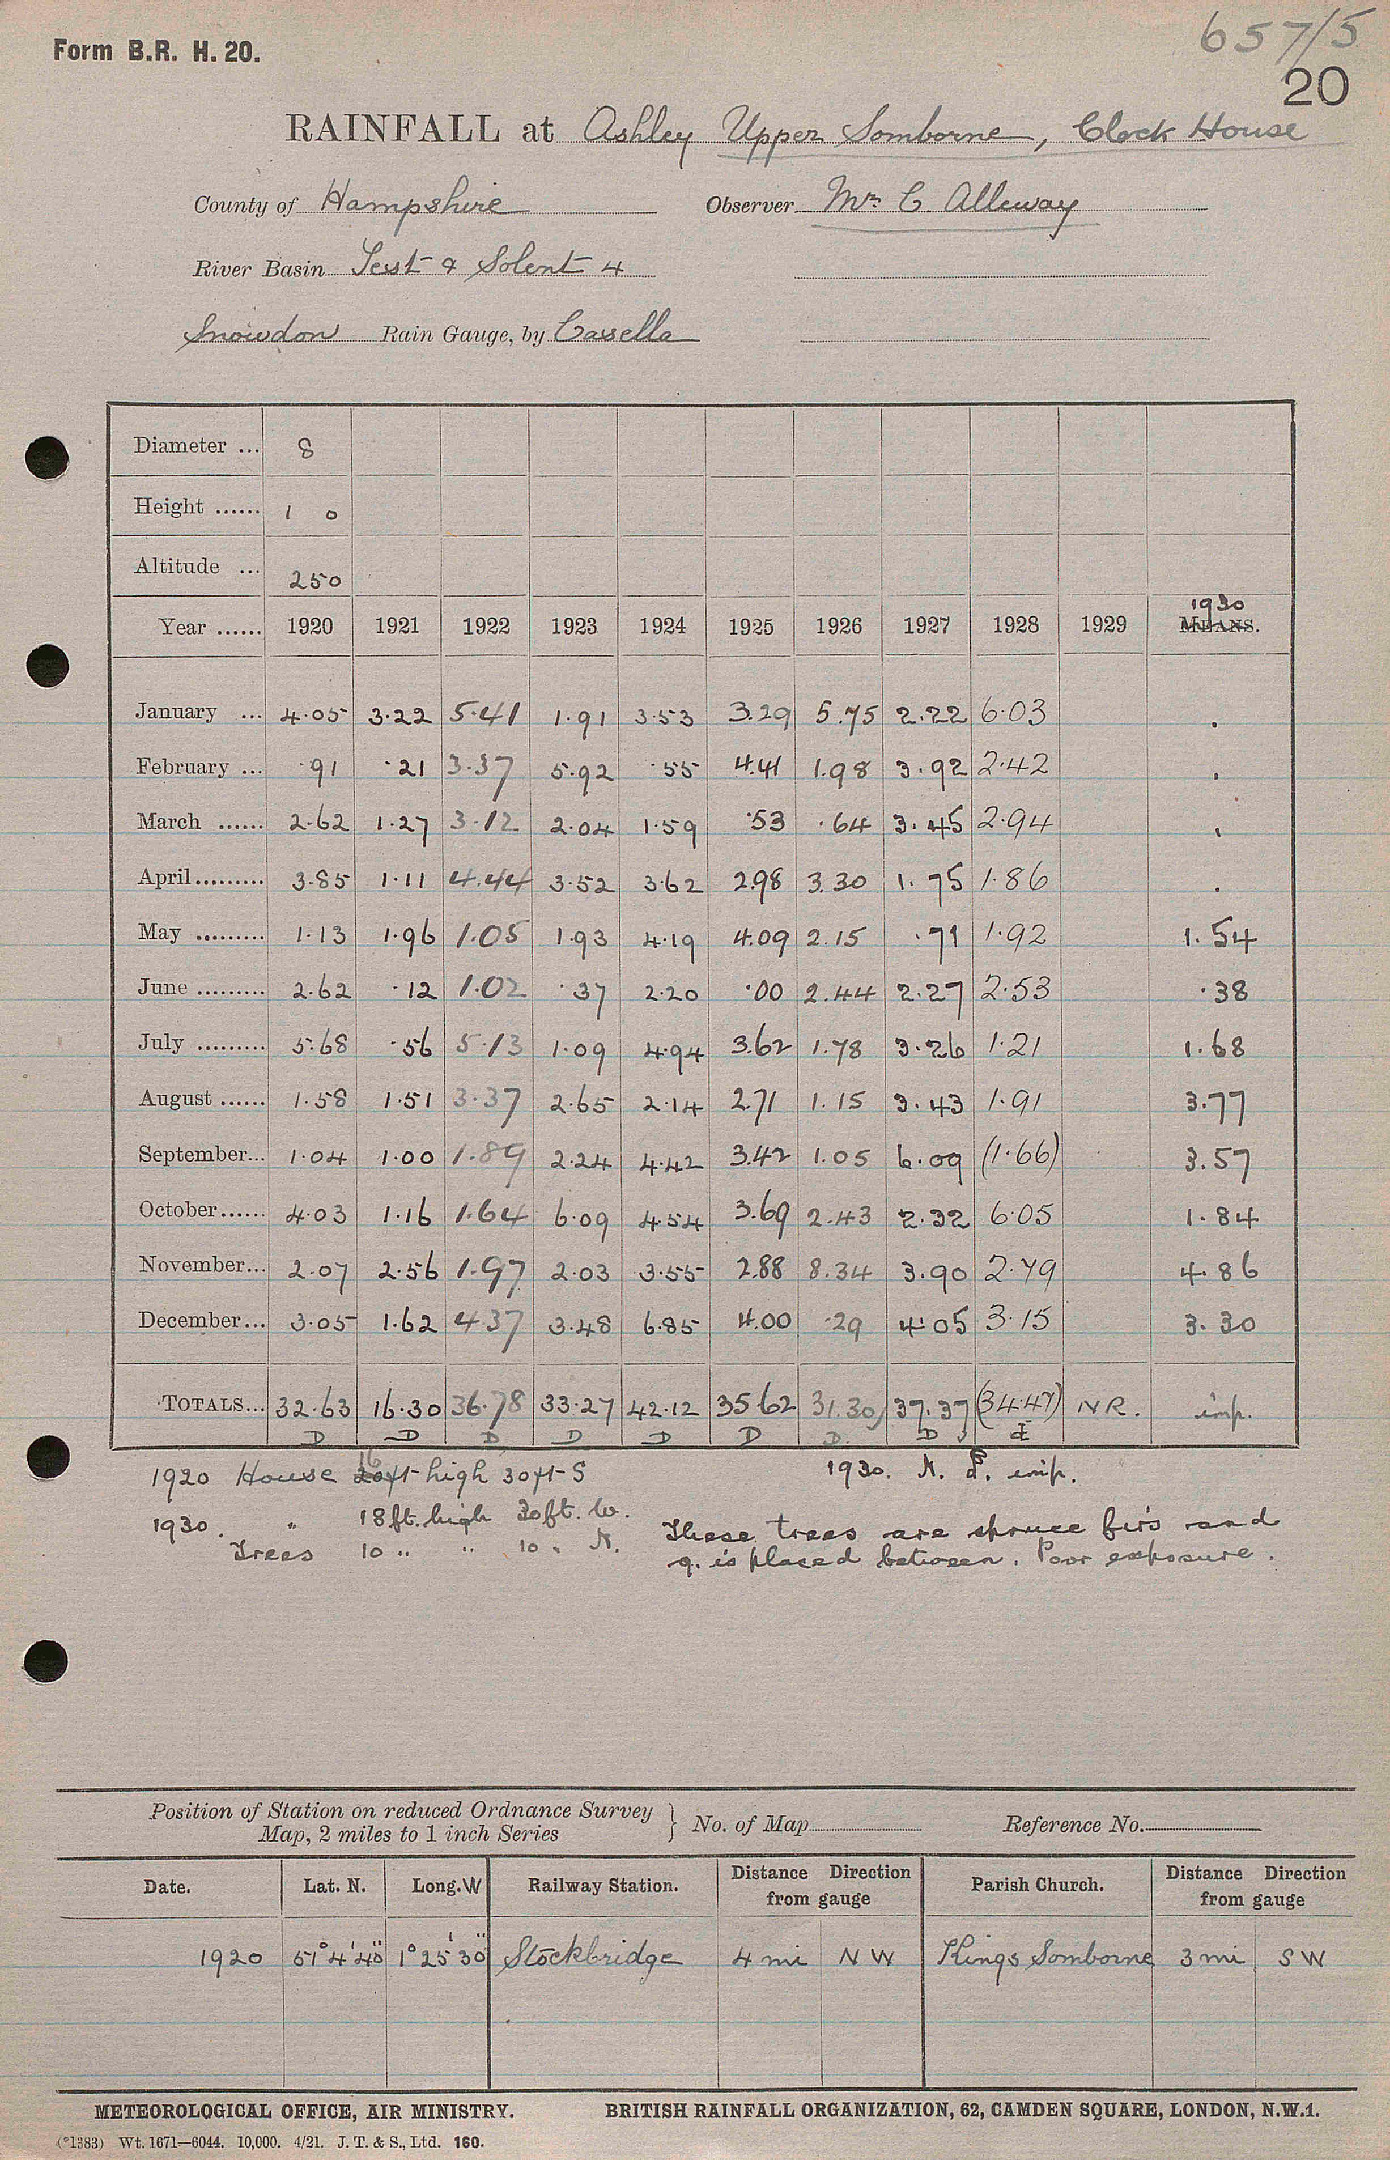 657/5
Form B.R. H. 20.
20
RAINFALL at Ashley Upper Somborne, Clock House
County of Hampshire Observer Mr C Alleway
River Basin Test & Solent 4
Snowdon Rain Gauge, by Casella
Diameter ... 8
Height ...... 1 0
Altitude ... 250
1930
Year ...... 1920 1921 1922 1923 1924 1925 1926 1927 1928 1929 MEANS.
January ... 4.05 3.22 5.41 1.91 3.53 3.29 5.75 2.22 6.03 .
February ... .91 .21 3.37 5.92 .55 4.41 1.98 3.92 2.42 .
March ...... 2.62 1.27 3.12 2.04 1.59 .53 .64 3.45 2.94 .
April ......... 3.85 1.11 4.44 3.52 3.62 2.98 3.30 1.75 1.86 .
May ......... 1.13 1.96 1.05 1.93 4.19 4.09 2.15 .71 1.92 1.54
June ......... 2.62 .12 1.02 .37 2.20 .00 2.44 2.27 2.53 .38
July ......... 5.68 .56 5.13 1.09 4.94 3.62 1.78 3.26 1.21 1.68
August ...... 1.58 1.51 3.37 2.65 2.14 2.71 1.15 3.43 1.91 3.77
September... 1.04 1.00 1.89 2.24 4.42 3.42 1.05 6.09 (1.66) 3.57
October...... 4.03 1.16 1.64 6.09 4.54 3.69 2.43 2.32 6.05 1.84
November... 2.07 2.56 1.97 2.03 3.55 2.88 8.34 3.90 2.79 4.86
December... 3.05 1.62 4.37 3.48 6.85 4.00 .29 4.05 3.15 3.30
TOTALS... 32.63 16.30 36.78 33.27 42.12 35.62 31.30 37.37 (34.47) N R. imp.
D D D D D D D. D
1920 House 16 ft high 30 ft S 1930. imp.
1930. " 18 ft. high 30 ft. W. These trees are spruce firs and
Trees 10 " " 10 " N. g. is placed between. Poor exposure.
Position of Station on reduced Ordnance Survey Map, 2 miles to 1 inch Series } No. of Map Reference No.
Date. Lat. N. Long. W Railway Station. Distance Direction from gauge Parish Church. Distance Direction from gauge
1920 51° 4' 40" 1° 25' 30" Stockbridge 4 mi N W Kings Somborne 3 mi S W
METEOROLOGICAL OFFICE, AIR MINISTRY. BRITISH RAINFALL ORGANIZATION, 62, CAMDEN SQUARE, LONDON, N.W.1.
(*1383) Wt. 1671—6044. 10,000. 4/21. J. T. & S., Ltd. 160.